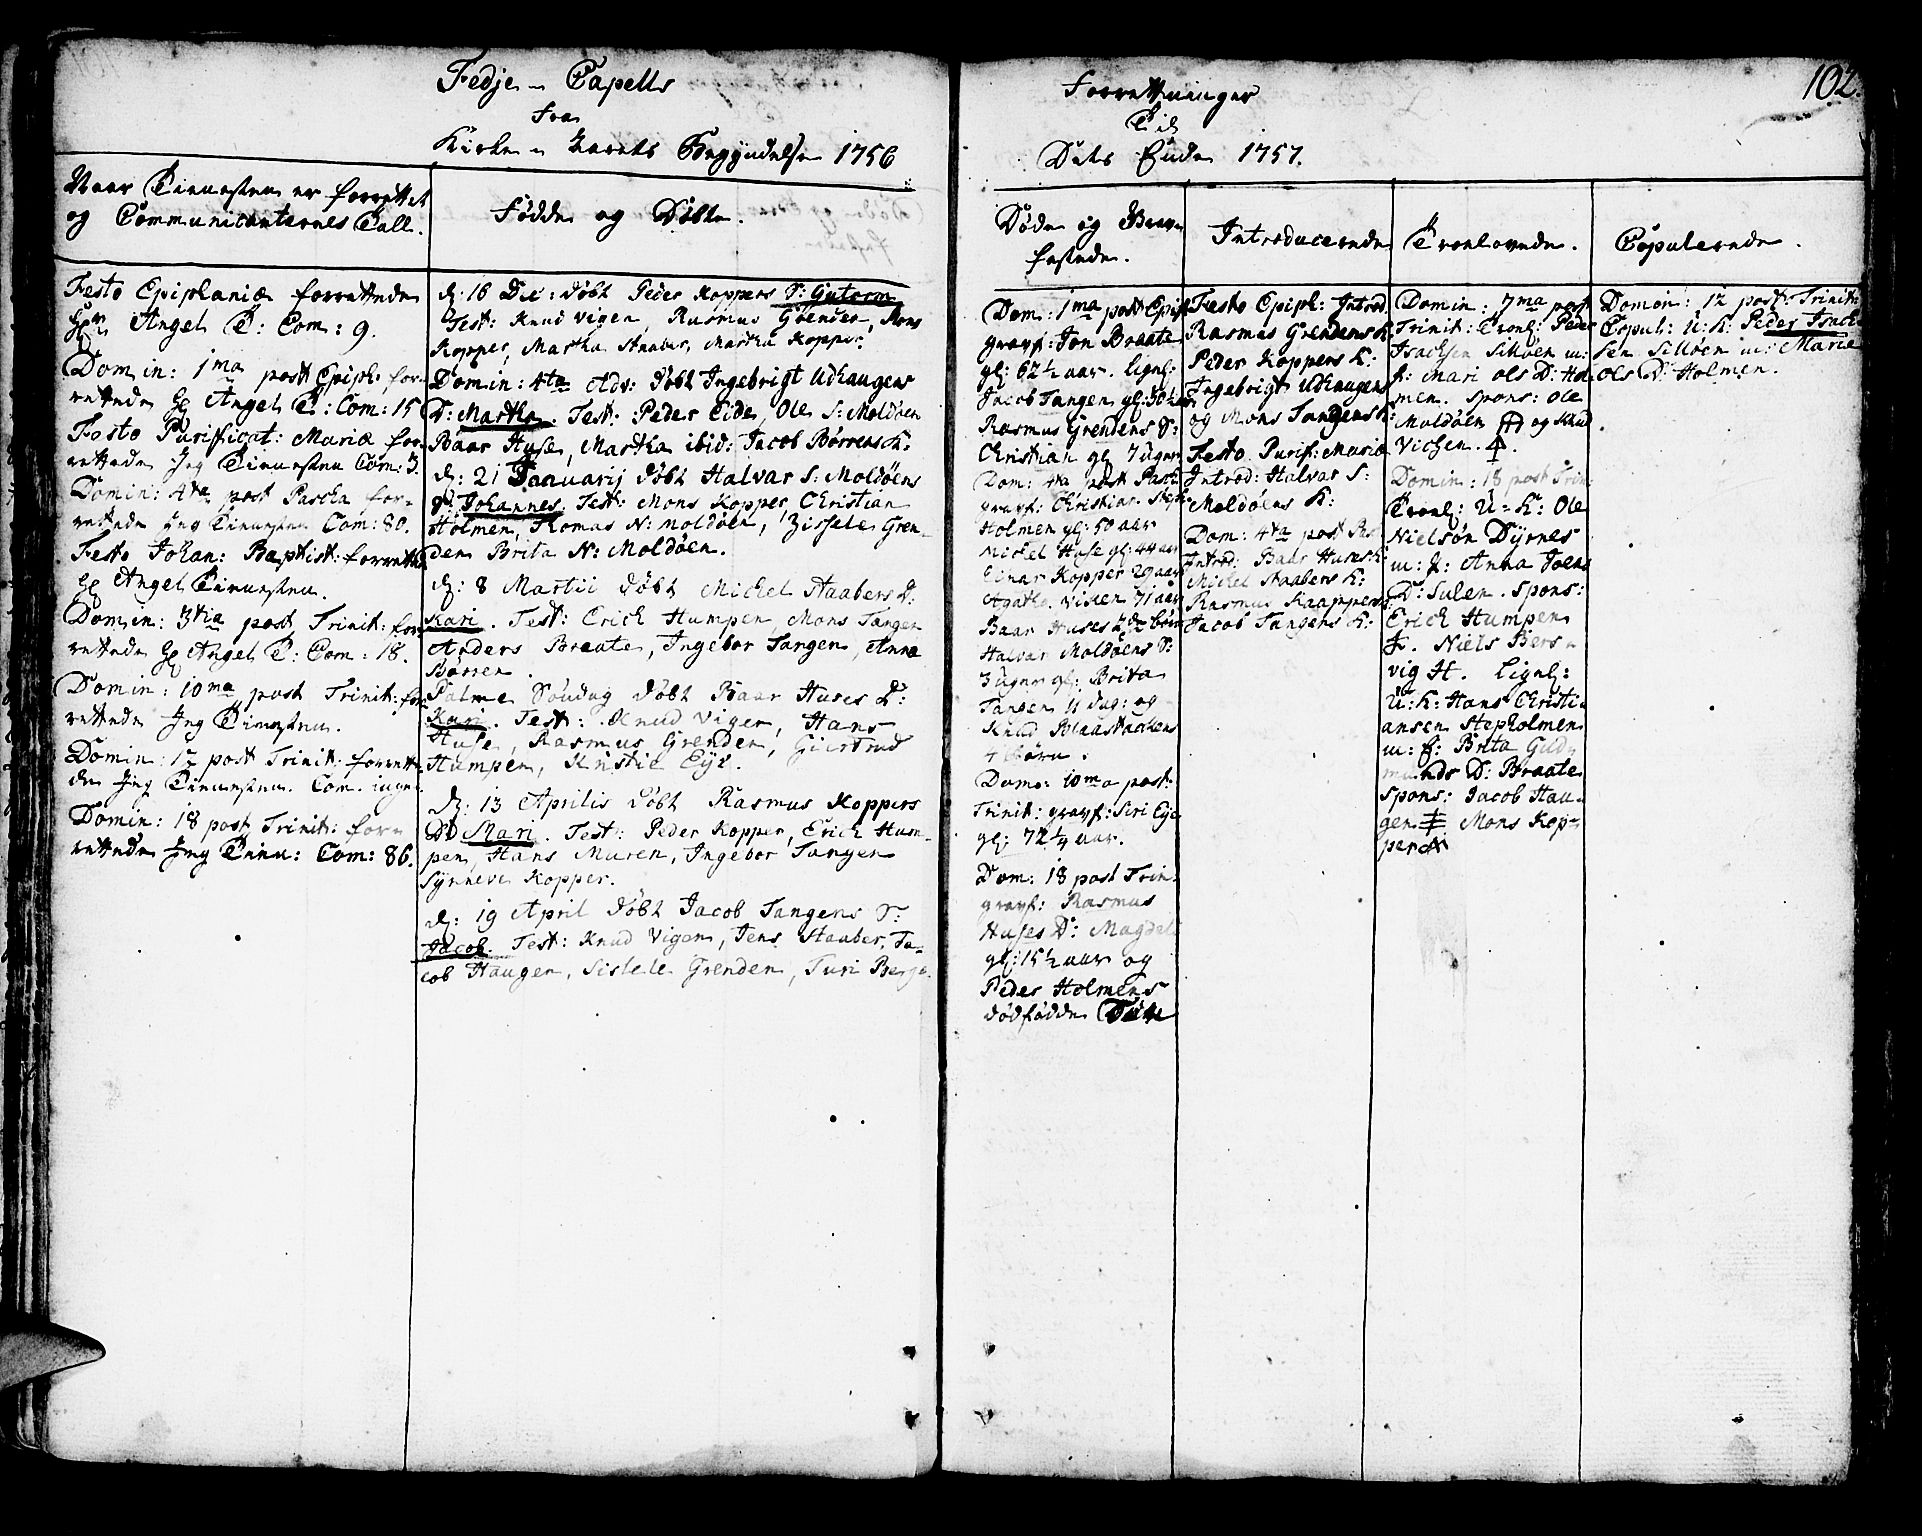 Fedje - Capells
fra
Kirke - Aarets Begyndelse 1756
Forretninger
Til
Dets Ende 1757.
102.
Naar Tienesten er forrettet
og Communicanternes Tall.
Fødde og Døbte.
Døde og Begra-
festede.
Introducerede
Troelovede.
Copulerede.
Festo Epiphaniæ forrettede
Hr Angel T: Com: 9.
Domin: 1ma post Epiph: for-
rettede Hr Angel T: Com: 15
Festo Purificat: Mariæ for-
rettede Jeg Tienesten Com: 3.
Domin: 4ta post Pascha for-
rettede Jeg Tienesten Com: 80.
Festo Johan: Baptist: forrettede
Hr Angel Tienesten.
Domin: 3tia post Trinit: for-
rettede Hr Angel T: Com: 18.
Domin: 10ma post Trinit: for-
rettede Jeg Tienesten.
Domin: 12 post Trinit: forrette-
de Jeg Tienesten. Com. ingen
Domin: 18 post Trinit: for-
rettede Jeg Tiene: Com: 86.
d: 16 Dec: døbt Peder Koppers S: Gutorm
Test: Knud Vigen, Rasmus Grenden, Mons
Kopper, Martha Staaber, Martha Kopper.
Domin: 4ta Adv: døbt Ingebrigt Udhaugens
D: Martha. Test: Peder Eide, Ole S: Moldøen
Baar Huse, Martha ibid: Jacob Børrens K:
d: 21 Januarij døbt Halvar S: Moldøens
S: Johannes. Test: Mons Kopper, Christian
Holmen, Thomas N: Moldøen, Zissele Gren-
den Brita N: Moldøen.
d: 8 Martii døbt Mickel Staabers D:
Kari. Test: Erich Humpen, Mons Tangen
Anders Braate, Ingebor Tangen, Anna
Børren.
Palme Søndag døbt Baar Huses D:
Kari. Test: Knud Vigen, Hans
Huse, Rasmus Grenden, Giertrud
Humpen, Kristie Eye.
d: 13 Aprilis døbt Rasmus Koppers
D Mari. Test: Peder Kopper, Erich Hum-
pen, Hans Muren, Ingebor Tangen
Synneve Kopper.
d: 19 April døbt Jacob Tangens S:
Jacob. Test: Knud Vigen, Jens Staaber, Ja-
cob Haugen, Sislele Grenden, Turi Berge.
Dom: 1ma post Epiph
gravf: Jon Braate
gl: 62½ aar. ligel:
Jacob Tangen gl: 50 aar
Rasmus Grendens S:
Christian gl: 7 uger
Dom: 4ta post Pasch
gravf: Christian Step-
Holmen gl: 50 aar
Mickel Huse gl: 44 aar
Einar Kopper 29 aar
Agatha Vicken 71 aar
Baar Huses 2de børn
Halvar Moldøens S:
3 uger gl: Brita
Tangen 11 dag: og
Knud
4 børn.
Dom: 10ma post
Trinit: gravf: Siri Eye
gl: 72¼ aar.
Dom: 18 post Trin:
gravf: Rasmus
Huses D: Magdel
gl: 15½ aar og
Peder Holmens
dødfødde
Festo Epiph: Introd:
Rasmus Grendens K
Peder Koppers K:
Ingebrigt Udhaugens
og Mons Tangens K:
Festo Purif: Mariæ
Introd: Halvar S:
Moldøens K:
Dom: 4ta post Pas
Introd: Baar Huses K:
Mickel Staabers K:
Rasmus Kaappers K:
Jacob Tangens K:
Domin: 7ma post
Trinit: Troel: Peder
Isachsen Silløen m:
P: Mari Ols D: Hol-
men. Spons: Ole
Moldøen og Knud
Vichen.
Domin: 18 post Trin:
Troel: U: K: Ole
Nielsøn Dyrnes
m: P: Anna Joens
D: Sulen. Spons:
Erich Humpen
Niels Bers-
vig H. Ligel:
U: K: Hans Christi-
ansen Stepholmen
m: P: Brita Gud-
munds D: Braate
Spons: Jacob Hau-
gen Mons Kop-
per
Domin: 12 post: Trinit:
Copul: U: K: Peder Isach-
sen Silløen m: Marie
Ols D: Holmen.